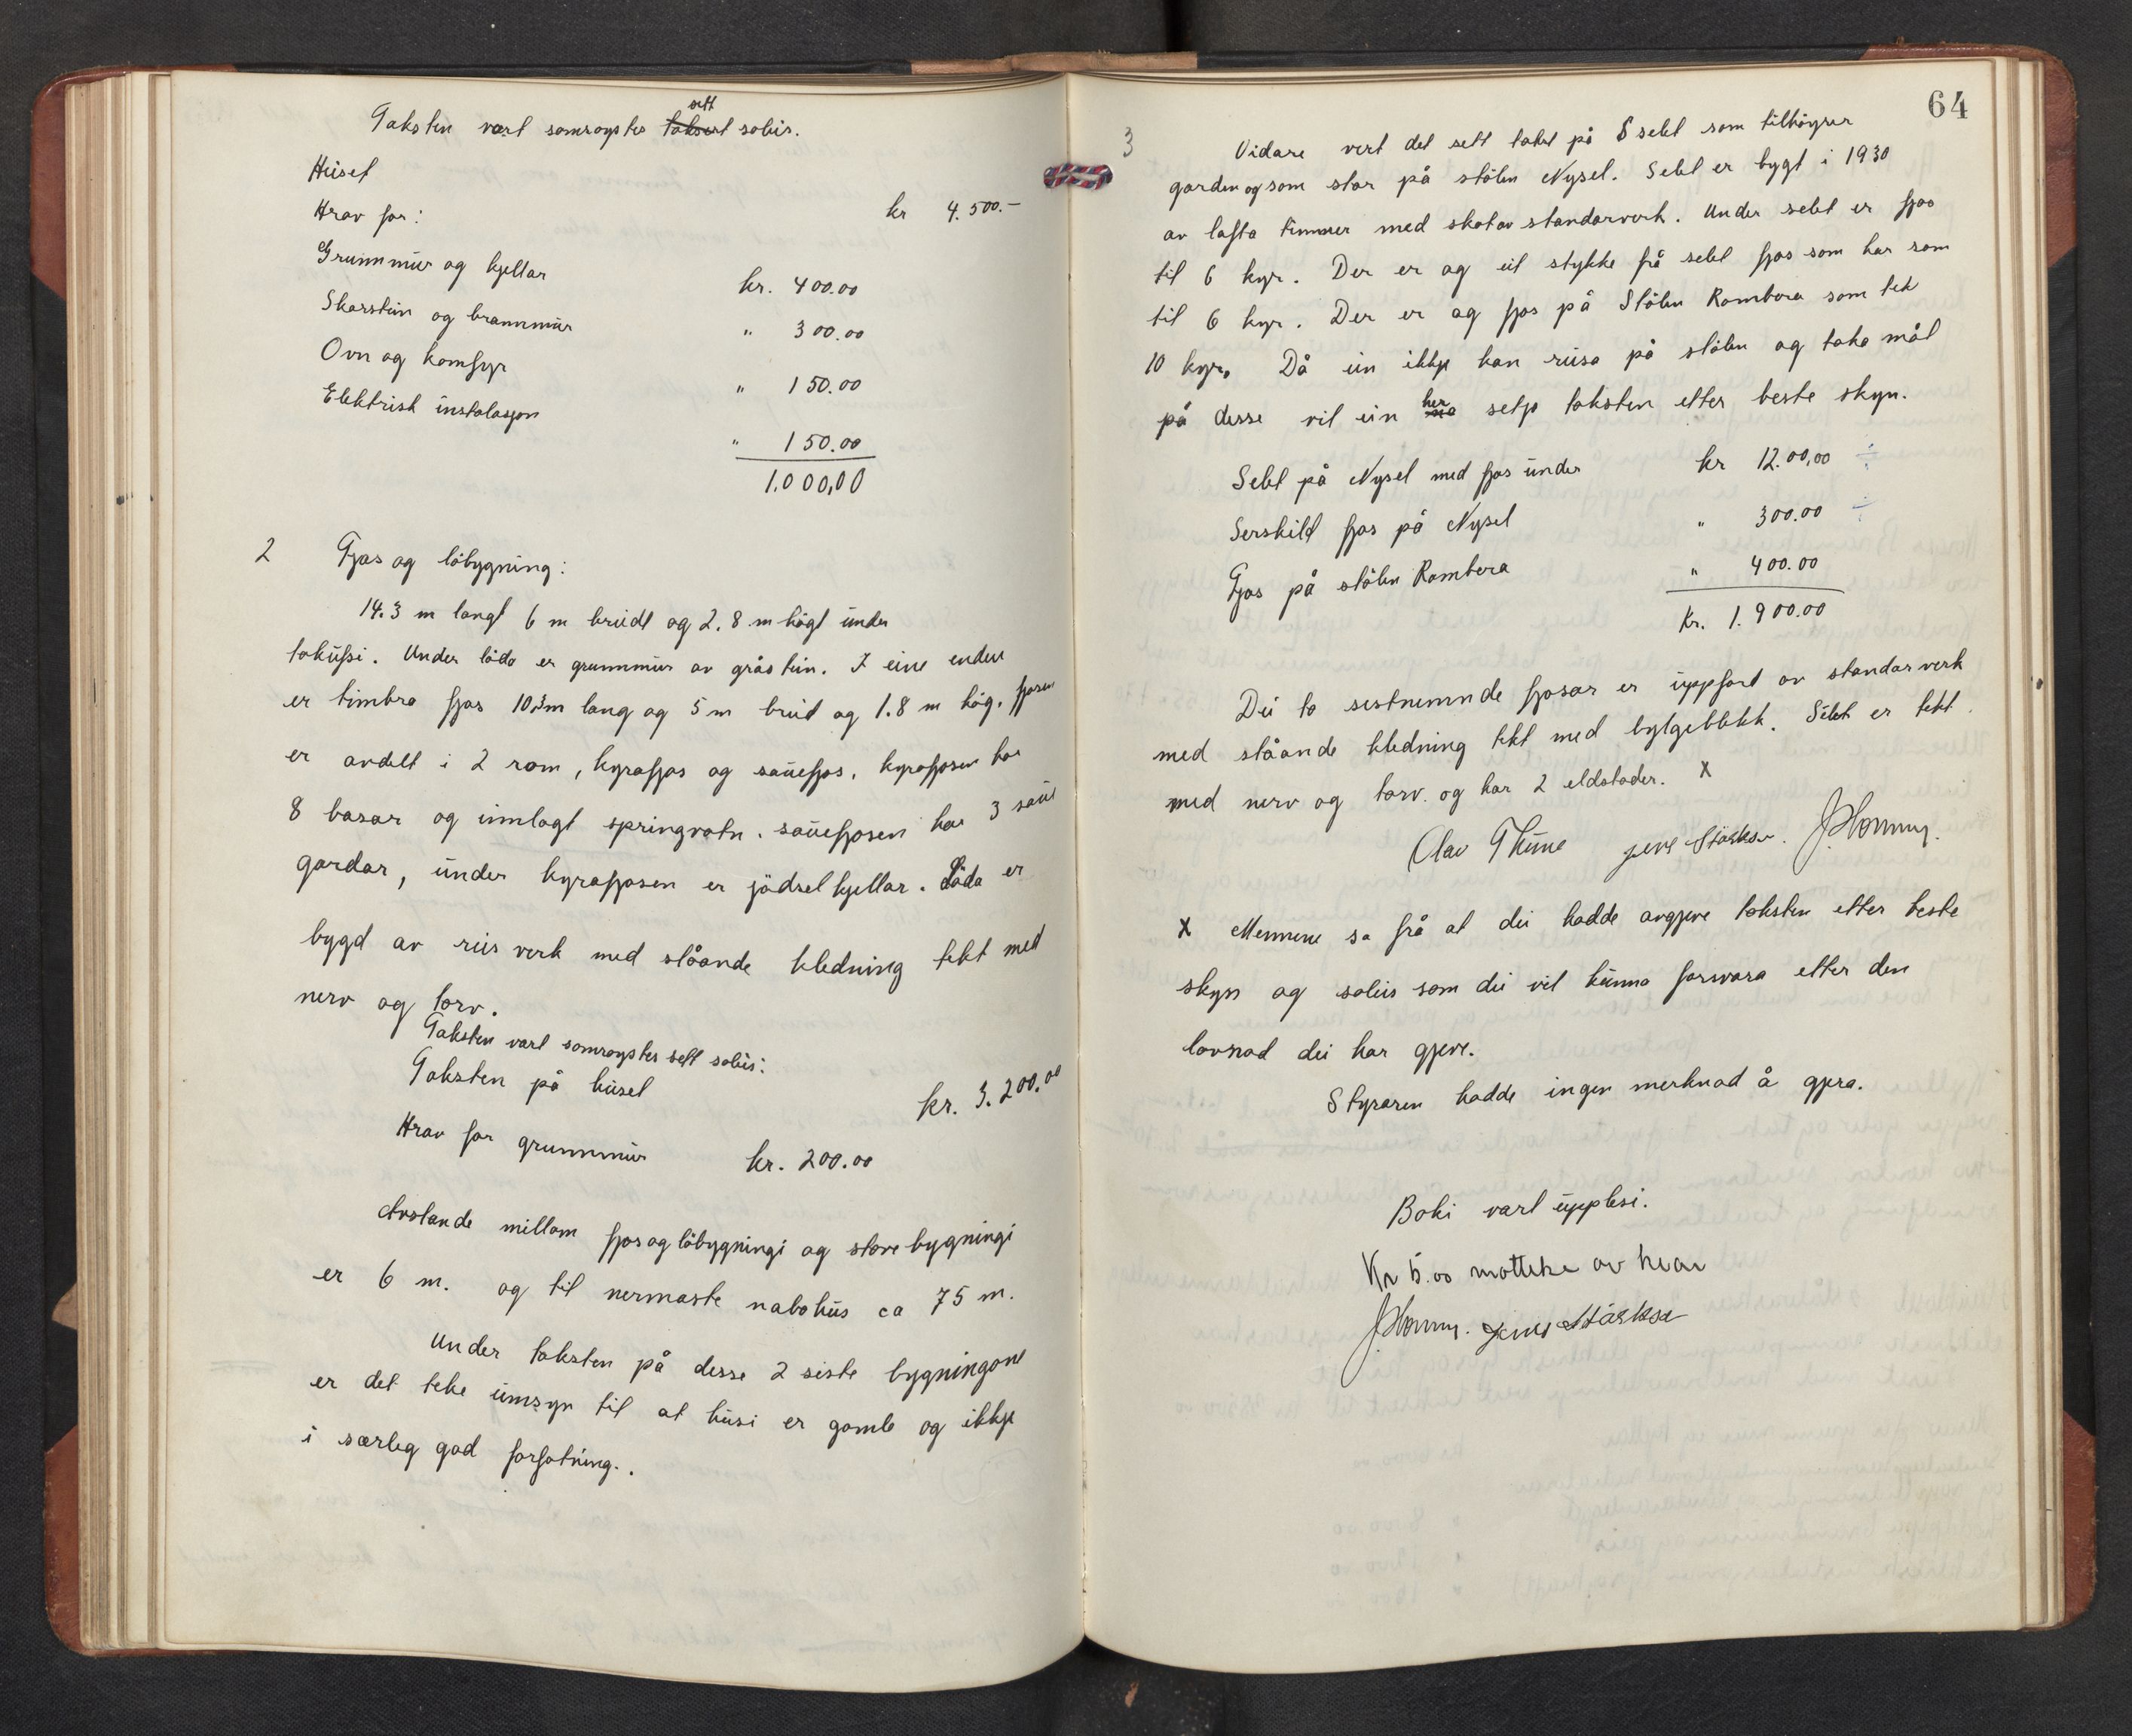 Taksten vart samrøystes taksert sett soleis.
Huset kr 4.500.-
Herav for:
Grunnmur og kjellar kr. 400.00
Skorstein og brannmur " 300.00
Ovn og komfyr " 150.00
Elektrisk instalasjon " 150.00
1.000,00
2 Fjos og löbygning:
14.3 m langt 6 m breidt og 2.8 m högt under
takufsi. Under löda er grunnmur av gråstein. I eine enden
er timbra fjos 10,3 m lang og 5 m breid og 1.8 m høg. fjosen
er avdelt i 2 rom, kyrafjos og sauefjos, kyrafjosen har
8 basar og innlagt springvatn. sauefjosen har 3 saue
gardar, under kyrafjosen er jödselkjellar. Löda er
bygd av reisverk med ståande kledning tekt med
nerv og torv.
Taksten vart samrøystes sett soleis:
Taksten på huset kr. 3.200.00
Herav for grunnmur kr. 200.00
Avstande millom fjos og löbygningi og stove bygningi
er 6 m. og til nermaste nabohus ca 75 m.
Under taksten på desse 2 siste bygningane
er det teke umsyn til at husi er gamle og ikkje
i særleg god forfatning.
64
3 Vidare vert det sett takst på S selet som tilhöyrer
garden og som står på stölen Nysel. Selet er bygt i 1930
av lafta timmer med skot av standarverk. Under selet er fjos
til 6 kyr. Der er og eit stykke frå selet fjos som har rom
til 6 kyr. Der er og fjos på Stölen Rambera som tek
10 kyr. Då ein ikkje kan reisa på stölen og taka mål
på desse vil ein her setje taksten etter beste skyn.
Selet på Nysel med fjos under kr 12.00,00 ÷
Serskild fjos på Nysel " 300.00 ÷
Fjos på stölen Rambera " 400.00
Kr. 1.900.00
Dei to sistnemnde fjosar er uppfört av standarverk
med ståande kledning tekt med bylgeblekk. Selet er tekt
med nerv og torv. og har 2 eldstader. X
Olav Thune
X Mennene sa frå at dei hadde avgjeve taksten etter beste
skyn og soleis som dei vil kunna forsvara etter den
lovnad dei har gjeve.
Styraren hadde ingen merknad å gjera.
Boki vart upplesi.
Kr 5.00 motteke av kvar